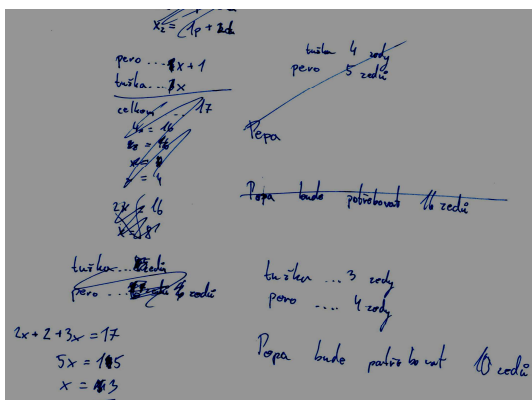 x₂ = (1p +
pero ... x + 1
tužka ... x
celkem ... 17
4x = 16
x = 4
2x = 16
x = 8
tužka ... zedů
pero ... zedů
2x + 2 + 3x = 17
5x = 15
x = 3
tužka 4 zedy
pero 5 zedů
Pepa
Pepa bude potřebovat 16 zedů
tužka ... 3 zedy
pero .... 4 zedy
Pepa bude potřebovat 10 zedů